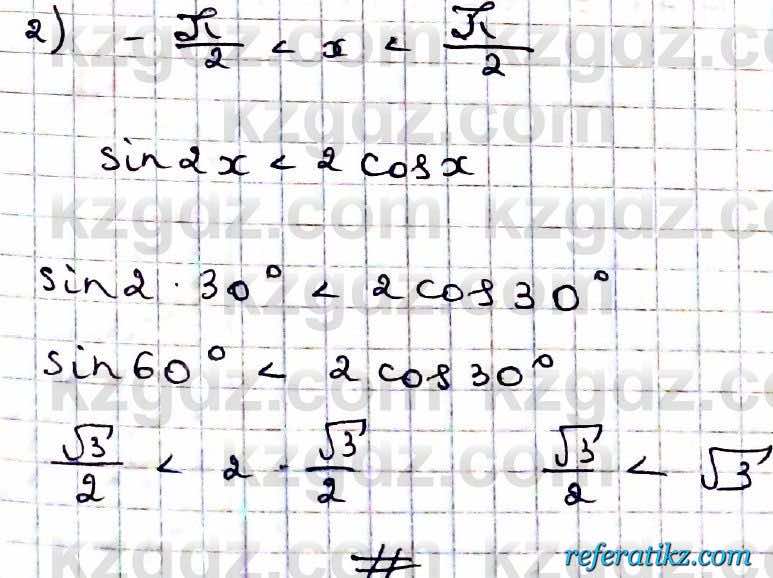 2) - π/2 < x < π/2
sin2x < 2cosx
sin2·30° < 2cos30°
sin60° < 2cos30°
√3/2 < 2·√3/2 √3/2 < √3
#
kzgdz.com
referatikz.com